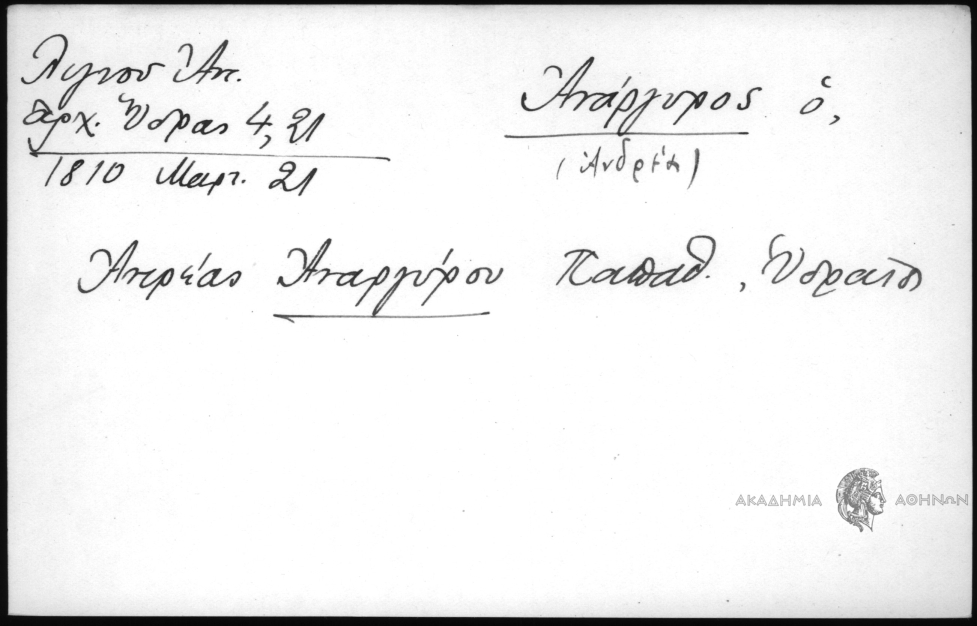 Λιγνού Ἀν.
Ἀρχ. Ὕδρας 4, 21
1810 Μαρτ. 21
Ἀνάργυρος ὁ,
(Ἀνδρέα)
Ἀντρέας Ἀναργύρου Παπαθ., Ὑδραῖος
ΑΚΑΔΗΜΙΑ ΑΘΗΝΩΝ